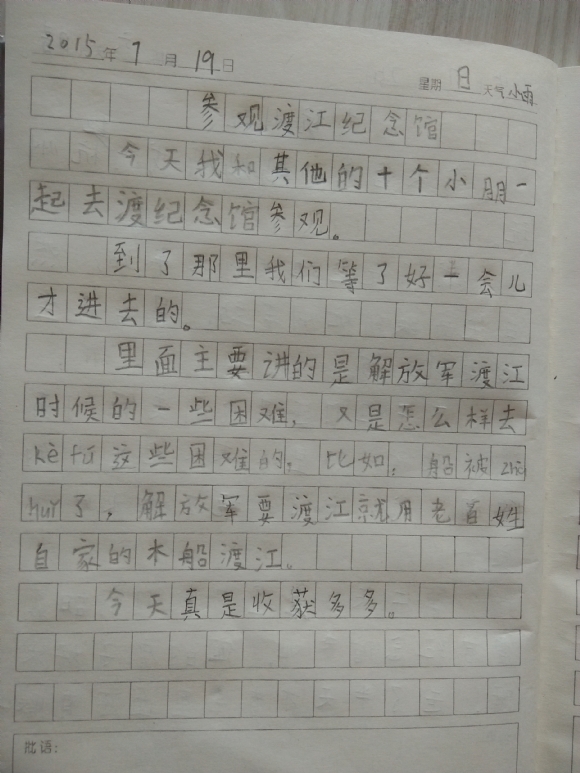 2015年7月19日 星期日 天气小雨
参观渡江纪念馆
今天我和其他的十个小朋一
起去渡纪念馆参观。
到了那里我们等了好一会儿
才进去的。
里面主要讲的是解放军渡江
时候的一些困难，又是怎么样去
kè fú 这些困难的。比如，船被zhá
huǐ了，解放军要渡江就用老百姓
自家的木船渡江。
今天真是收获多多。
批语：